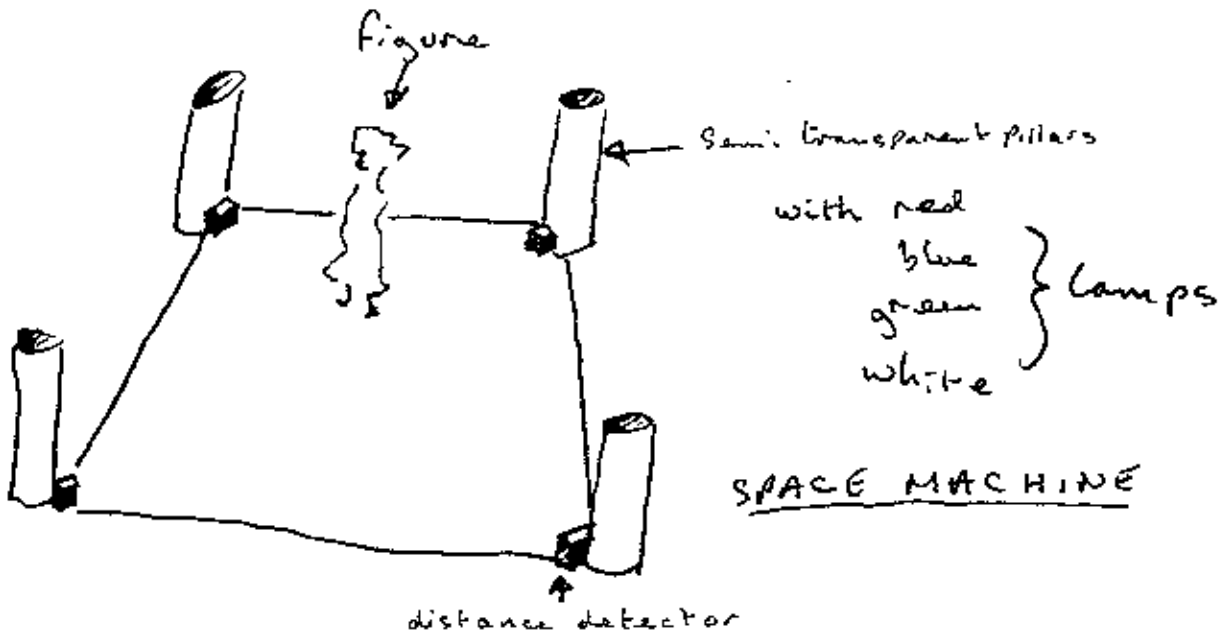 figure
Semi transparent pillars
with red
blue
green
white
lamps
SPACE MACHINE
distance detector